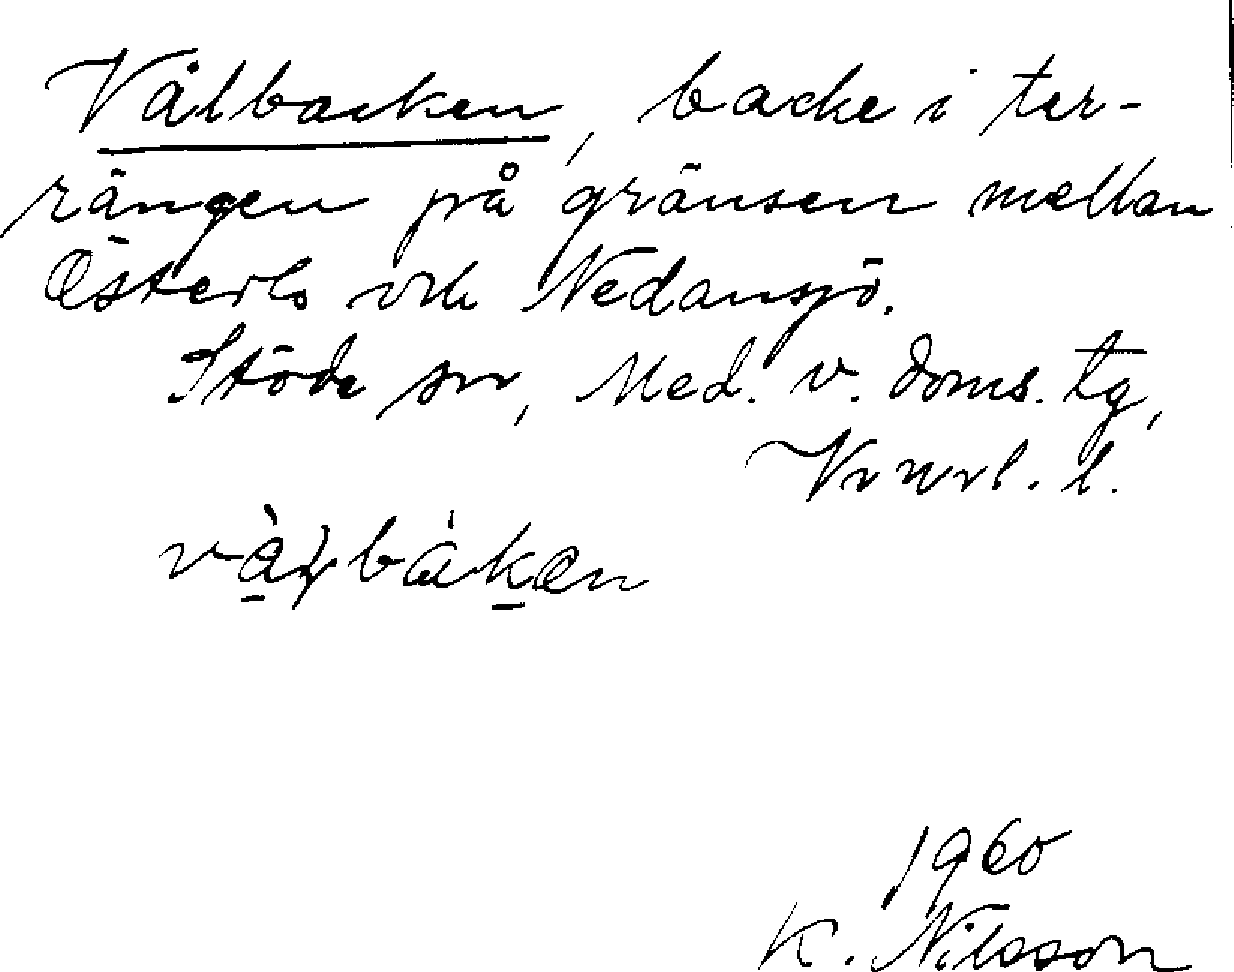 Vålbacken, backe i ter-
rängen på gränsen mellan
Österlo och Nedansjö.
Stöde sn, Med. v. doms. tg,
Vnorl. l.
1960
K. Nilsson